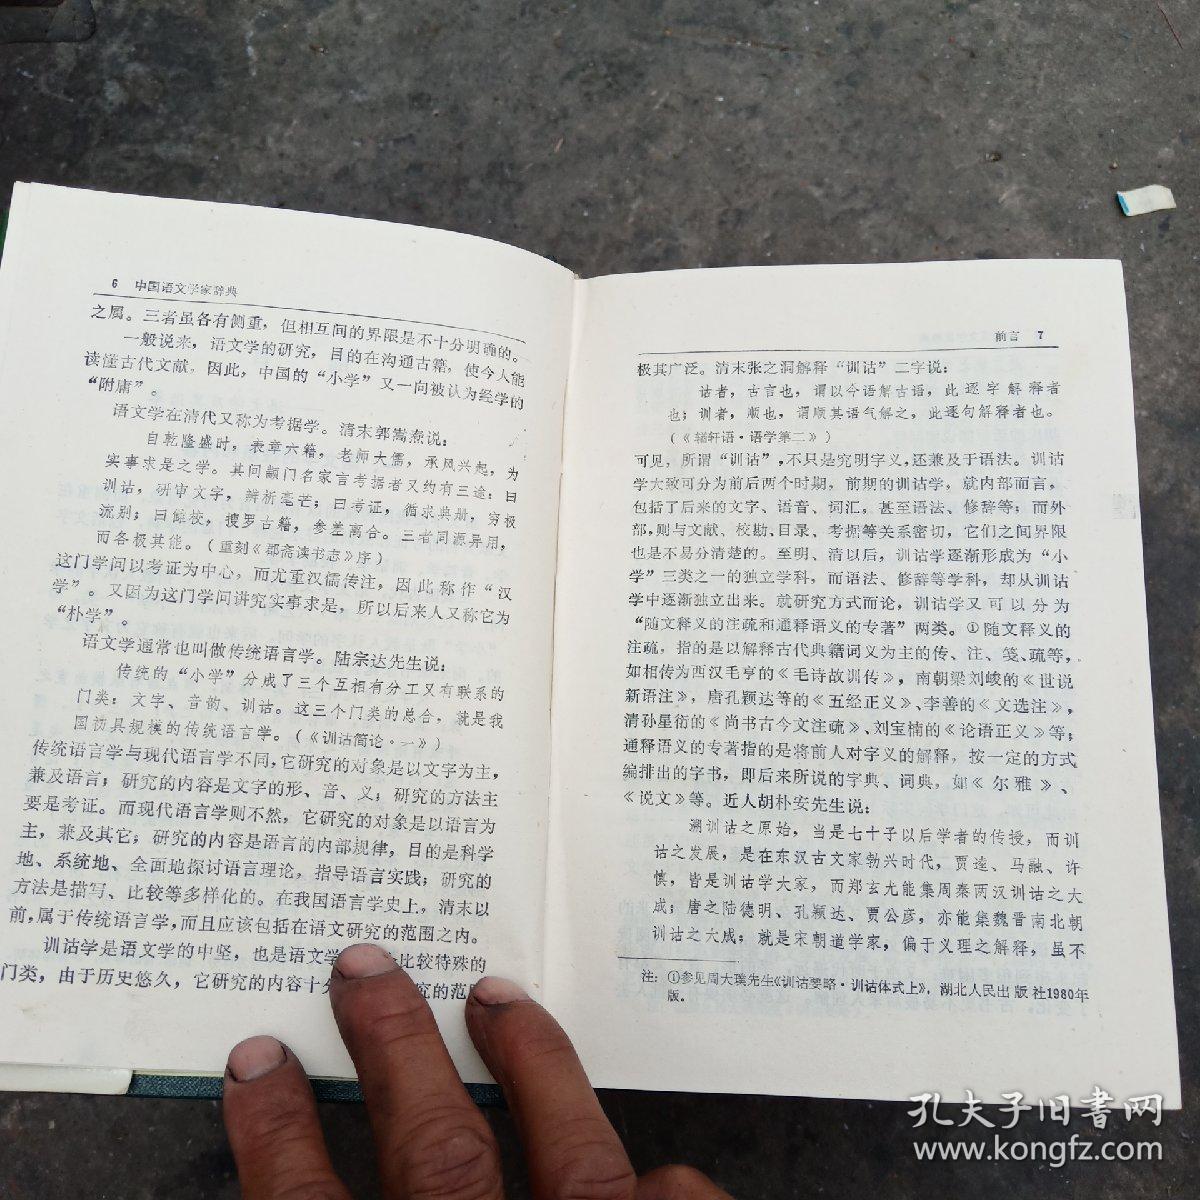 6 中国语文学家辞典
之属。三者虽各有侧重，但相互间的界限是不十分明确的。
一般说来，语文学的研究，目的在沟通古籍，使今人能
读懂古代文献。因此，中国的“小学”又一向被认为经学的
“附庸”。
语文学在清代又称为考据学。清末郭嵩焘说：
自乾隆盛时，表章六籍，老师大儒，承风兴起，为
实事求是之学。其间颛门名家言考据者又约有三途：曰
训诂，研审文字，辨析毫芒；曰考证，循求典册，穷极
流别；曰雠校，搜罗古籍，参差离合。三者同源异用，
而各极其能。（重刻《郡斋读书志》序）
这门学问以考证为中心，而尤重汉儒传注，因此称作“汉
学”。又因为这门学问讲究实事求是，所以后来人又称它为
“朴学”。
语文学通常也叫做传统语言学。陆宗达先生说：
传统的“小学”分成了三个互相有分工又有联系的
门类：文字、音韵、训诂。这三个门类的总合，就是我
国初具规模的传统语言学。（《训诂简论·一》）
传统语言学与现代语言学不同，它研究的对象是以文字为主，
兼及语言；研究的内容是文字的形、音、义；研究的方法主
要是考证。而现代语言学则不然，它研究的对象是以语言为
主，兼及其它；研究的内容是语言的内部规律，目的是科学
地、系统地、全面地探讨语言理论，指导语言实践；研究的
方法是描写、比较等多样化的。在我国语言学史上，清末以
前，属于传统语言学，而且应该包括在语文研究的范围之内。
训诂学是语文学的中坚，也是语文学比较特殊的
门类，由于历史悠久，它研究的内容十分究的范
前言 7
极其广泛。清末张之洞解释“训诂”二字说：
诂者，古言也，谓以今语解古语，此逐字解释者
也；训者，顺也，谓顺其语气解之，此逐句解释者也。
（《輶轩语·语学第二》）
可见，所谓“训诂”，不只是究明字义，还兼及于语法。训诂
学大致可分为前后两个时期，前期的训诂学，就内部而言，
包括了后来的文字、语音、词汇，甚至语法、修辞等；而外
部，则与文献、校勘、目录、考据等关系密切，它们之间界限
也是不易分清楚的。至明、清以后，训诂学逐渐形成为“小
学”三类之一的独立学科，而语法、修辞等学科，却从训诂
学中逐渐独立出来。就研究方式而论，训诂学又可以分为
“随文释义的注疏和通释语义的专著”两类。①随文释义的
注疏，指的是以解释古代典籍词义为主的传、注、笺、疏等，
如相传为西汉毛亨的《毛诗故训传》，南朝梁刘峻的《世说
新语注》，唐孔颖达等的《五经正义》、李善的《文选注》，
清孙星衍的《尚书古今文注疏》、刘宝楠的《论语正义》等；
通释语义的专著指的是将前人对字义的解释，按一定的方式
编排出的字书，即后来所说的字典、词典，如《尔雅》、
《说文》等。近人胡朴安先生说：
溯训诂之原始，当是七十子以后学者的传授，而训
诂之发展，是在东汉古文家勃兴时代，贾逵、马融、许
慎，皆是训诂学大家，而郑玄尤能集周秦两汉训诂之大
成；唐之陆德明、孔颖达、贾公彦，亦能集魏晋南北朝
训诂之大成；就是宋朝道学家，偏于义理之解释，虽不
注：①参见周大璞先生《训诂要略·训诂体式上》，湖北人民出版社1980年
版。
孔夫子旧书网
www.kongfz.com